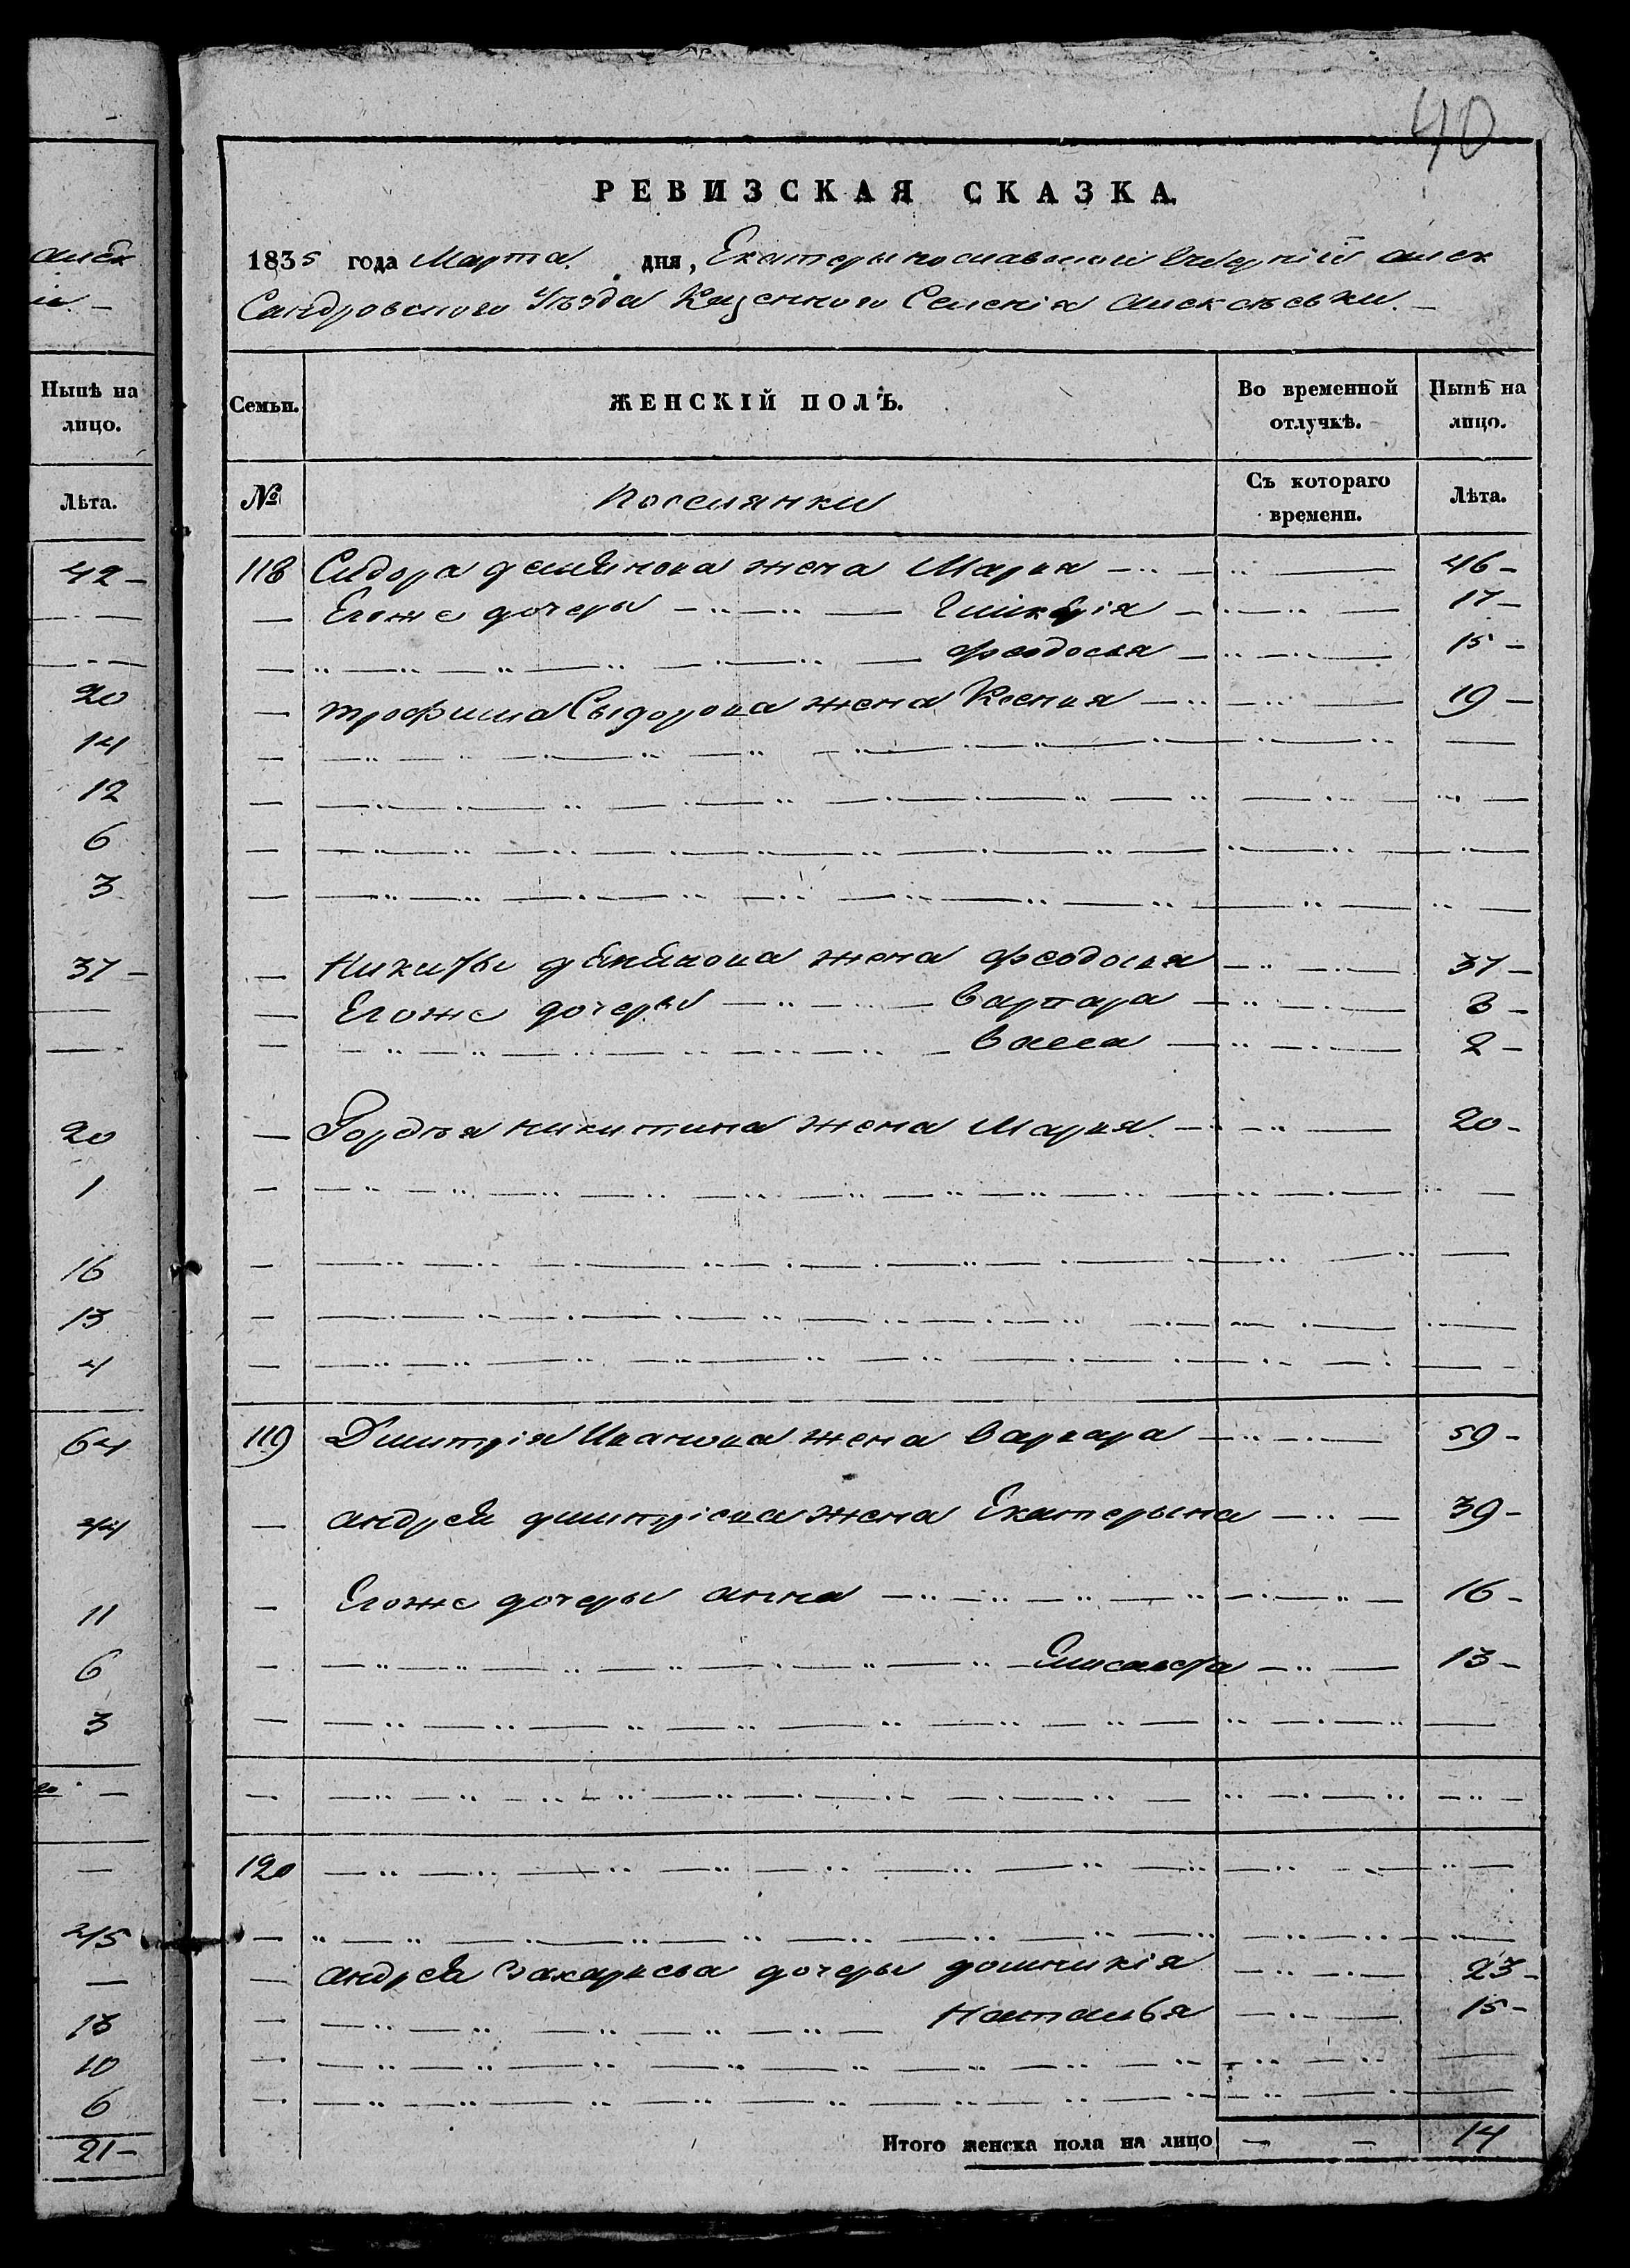 40
РЕВИЗСКАЯ СКАЗКА.
1835 года Марта дня, Екатеринославской Губерніи Алек
сандровского Уѣзда Казенного Селенія Алексѣевки.
Нынѣ на лицо.
Лѣта.
42
20
14
12
6
3
37
20
1
16
13
4
64
44
11
6
3
45
13
10
6
21
Семьи. ЖЕНСКІЙ ПОЛЪ. Во временной отлучкѣ. Нынѣ на лицо.
№ Поселянки Съ котораго времени. Лѣта.
118 Сидора жена Мария 46
Егоже дочеры Гликерія 17
Феодосия 15
Трофима Сыдорова жена Ксения 19
Никиты жена Феодосия 37
Егоже дочеры Варвара 3
Васса 2
Гордѣя Никитина жена Мария 20
119 Дмитрія Иванова жена Варвара 59
Андрея Дмитріева жена Екатерына 39
Егоже дочеры Анна 16
Елисавета 13
120
Андрея Захариева дочеры Домникія 23
Наталья 15
Итого женска пола на лицо 14